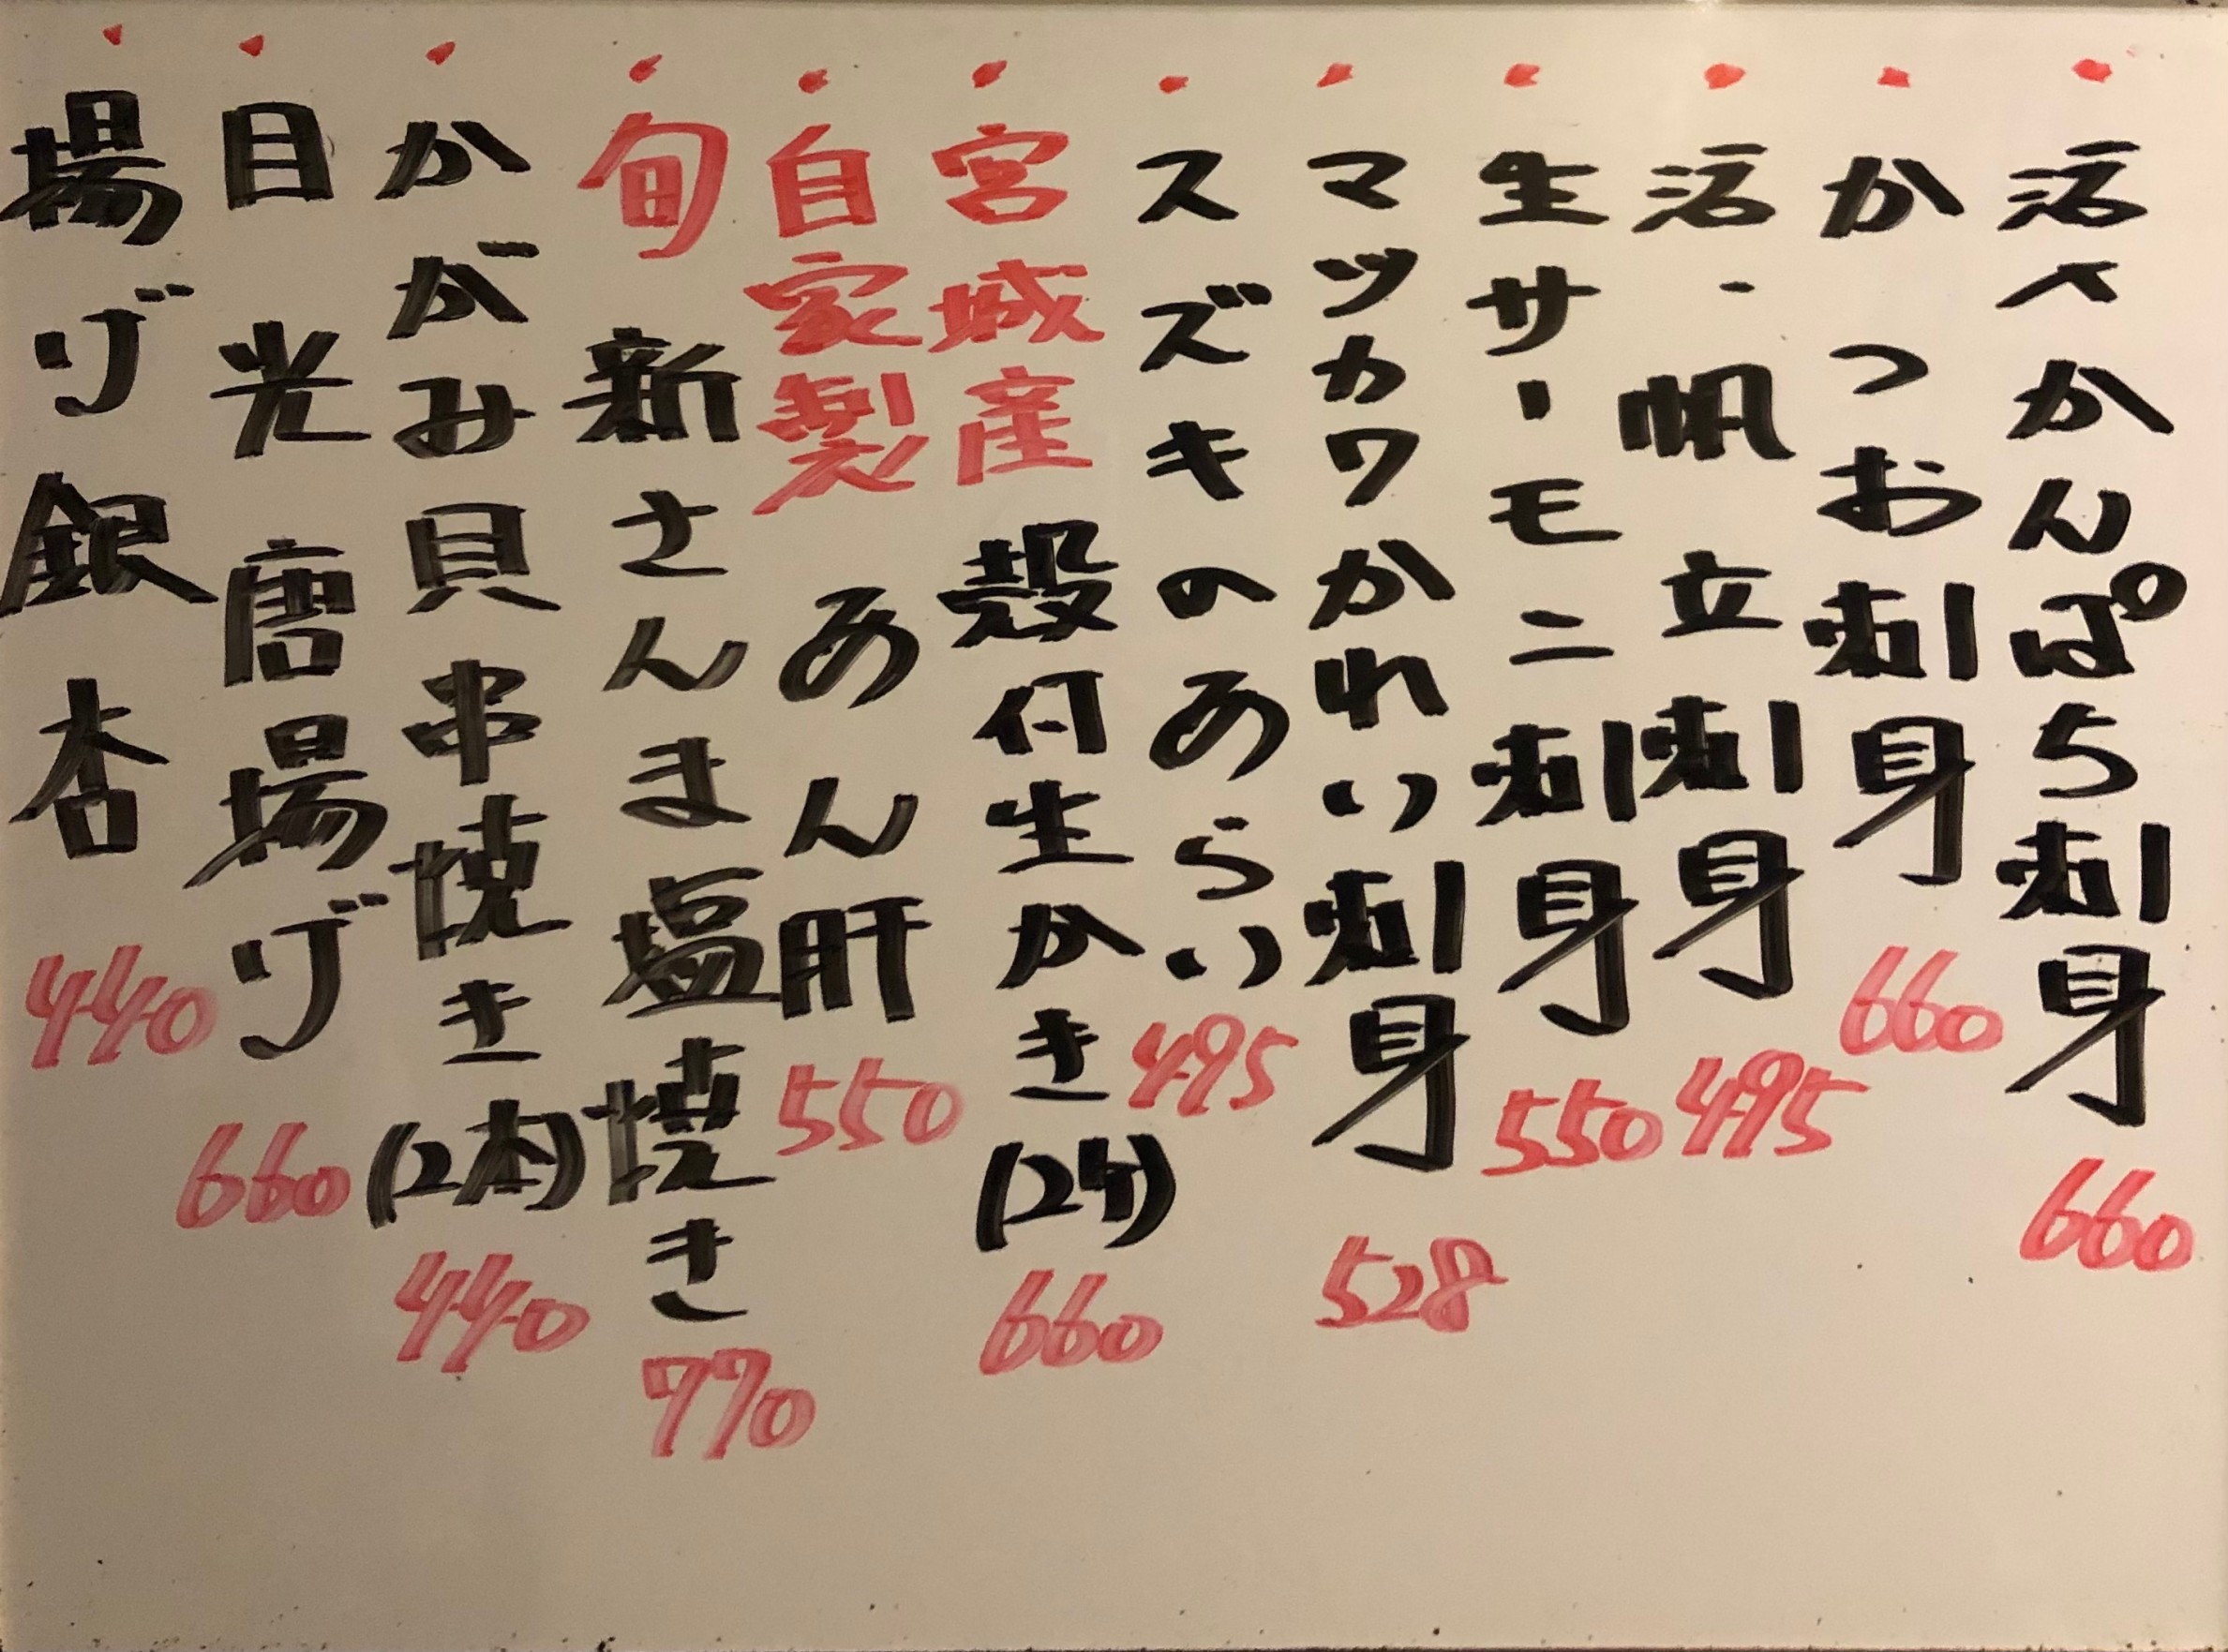 ・活〆かんぱち刺身 660
・かつお刺身 660
・活・帆立刺身 495
・生サーモン刺身 550
・マツカワかれい刺身 528
・スズキのあらい 495
・宮城産 殻付生かき(2ケ) 660
・自家製 あん肝 550
・旬 新さんま塩焼き 770
・かがみ貝串焼き(2本) 440
・目光唐揚げ 660
・揚げ銀杏 440